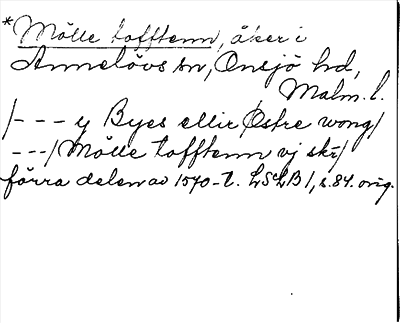 *Mölle tofftenn, åker i
Annelövs sn, Onsjö hd,
Malm. l.
/--- y Byes ellir /Østre wong/
---/ Mölle tofftenn vj skr/
förra delen av 1570-t. LSLB 1, s. 84. orig.